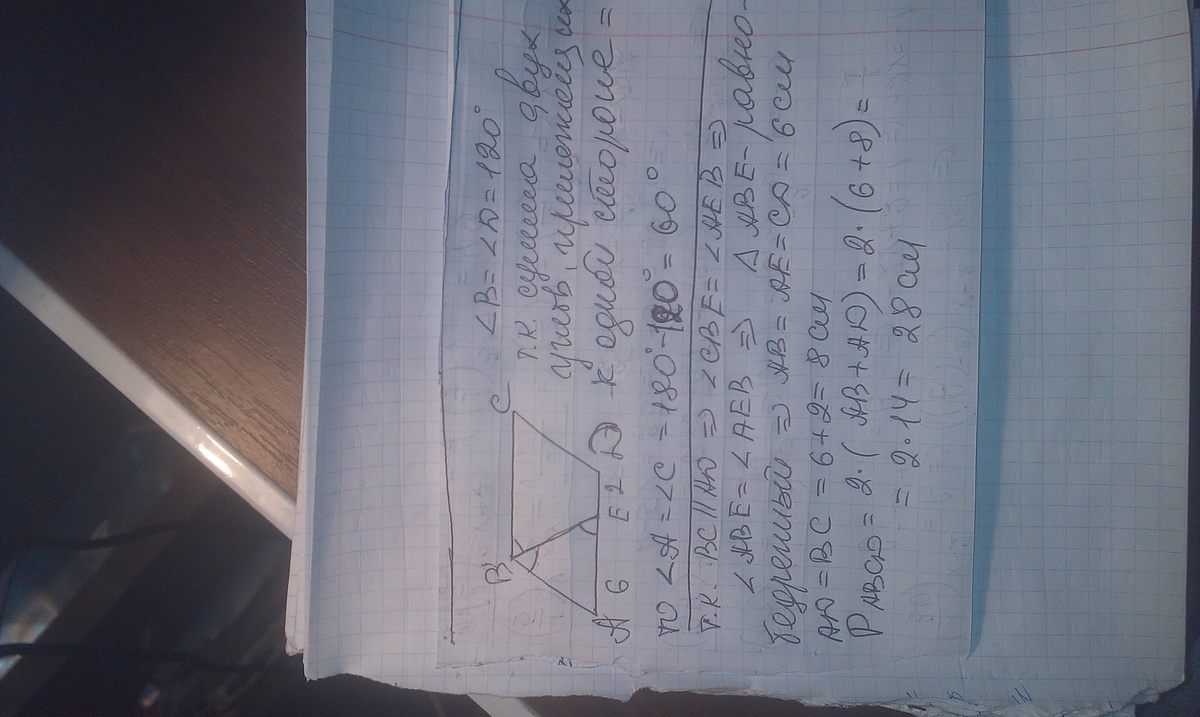 ∠B = ∠D = 120°
т.к. сумма двух
углов, прилежащих
к одной стороне =
B C
A 6 E 2 D
то ∠A = ∠C = 180° - 120° = 60°
т.к. BC || AD ⇒ ∠CBE = ∠AEB ⇒
∠ABE = ∠AEB ⇒ △ ABE - равно-
бедренный ⇒ AB = AE = CD = 6 см
AD = BC = 6 + 2 = 8 см
P ABCD = 2 · ( AB + AD ) = 2 · (6 + 8) =
= 2 · 14 = 28 см